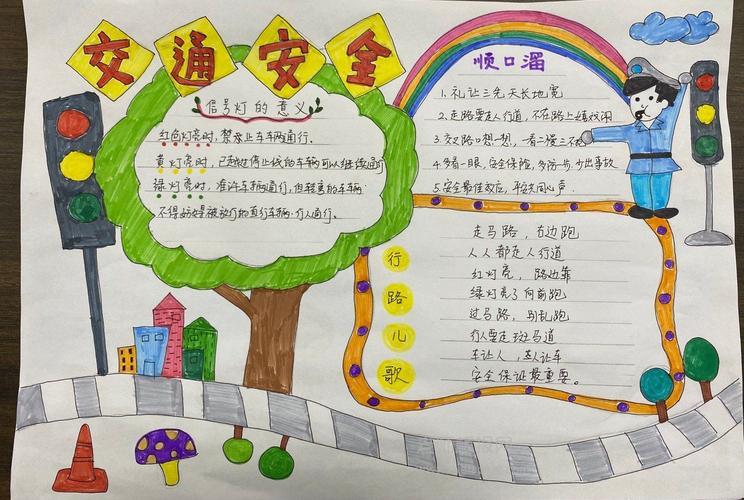 交通安全
信号灯的意义
红色灯亮时，禁止车车两通行.
黄灯亮时，已越过停止线的车辆可以继续通行
绿灯亮时，准许车辆通行，但转弯的车辆
不得妨碍被放行的直行车辆.行人通行。
顺口溜
1.礼让三先天长地宽
2.走路要走人行道，不在路上嬉戏闹
3.交叉路口想一想，一看二慢三不
4.多看一眼，安全保险，多防一步，少出事故
5.安全最佳效应，平安共同心声.
行路儿歌
走马路，右边跑
人人都走人行道
红灯亮，路边靠
绿灯亮了向前跑
过马路，别乱跑
行人要走斑马道
车让人，人让车
安全保证最重要。